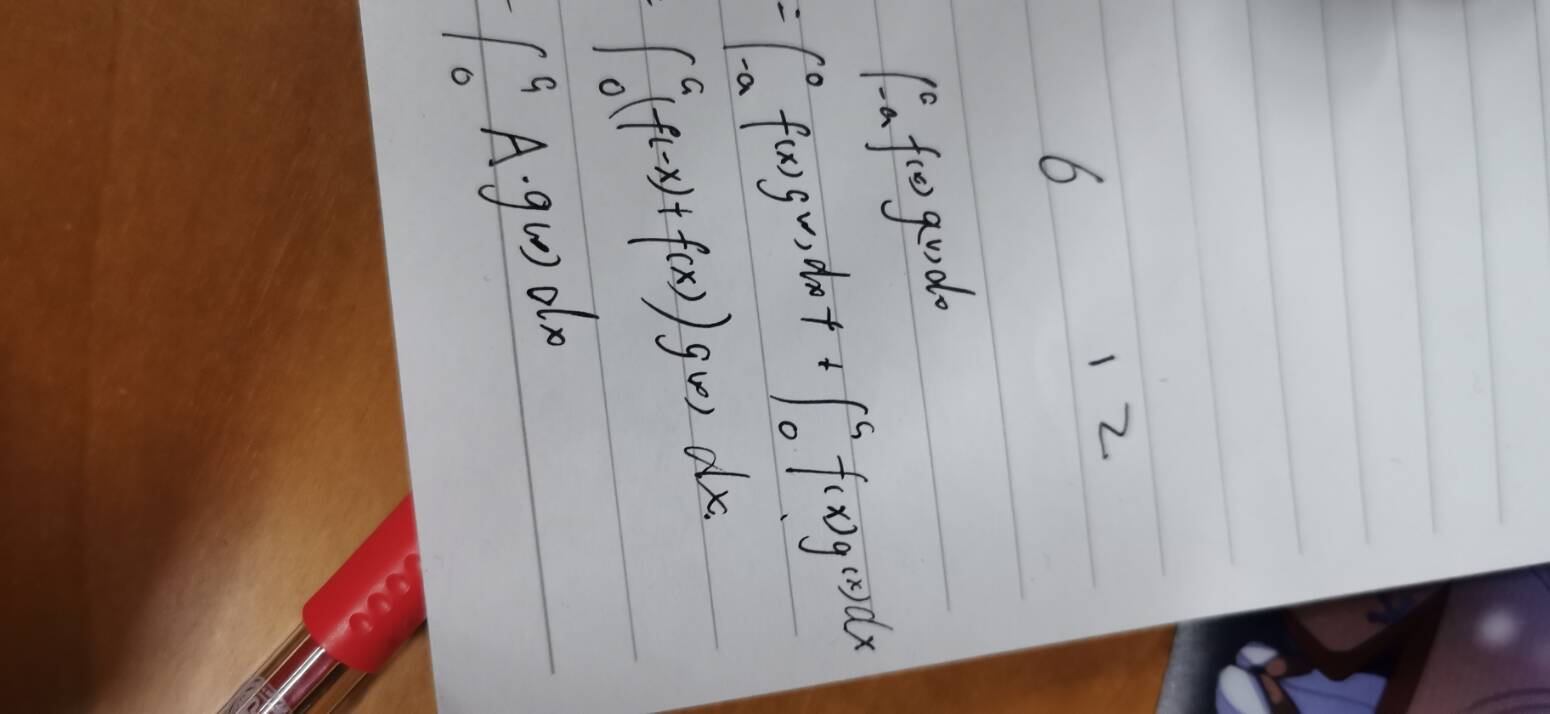 6 12
∫_{-a}^{a} f(x) g(x) dx
= ∫_{-a}^{0} f(x) g(x) dx + + ∫_{0}^{a} f(x) g(x) dx
= ∫_{0}^{a} (f(-x) + f(x)) g(x) dx.
= ∫_{0}^{a} A · g(x) dx